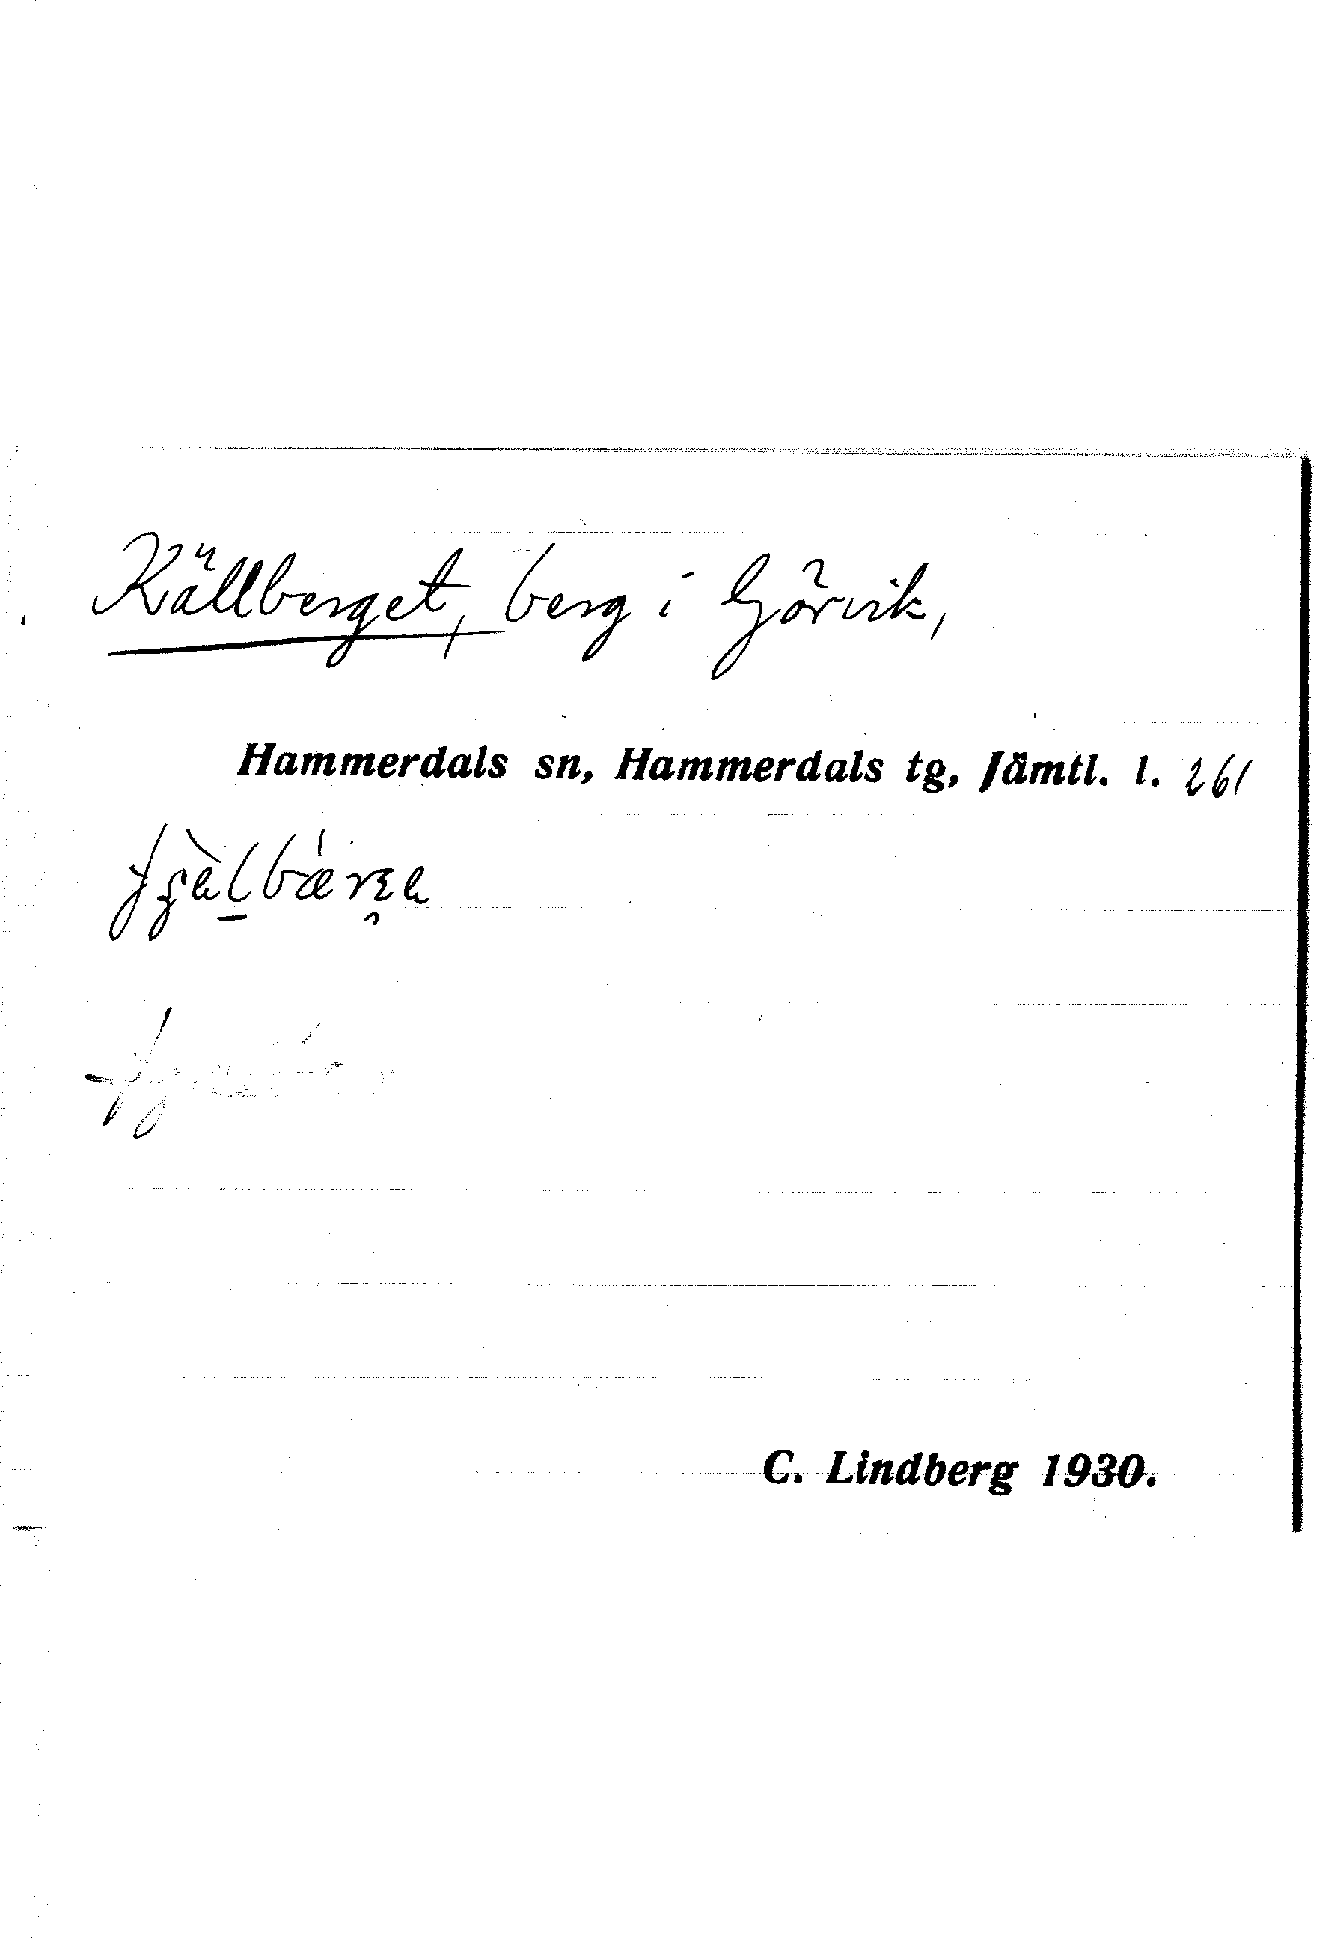 Källberget, berg i Görvik,
Hammerdals sn, Hammerdals tg, Jämtl. l. 261
C. Lindberg 1930.